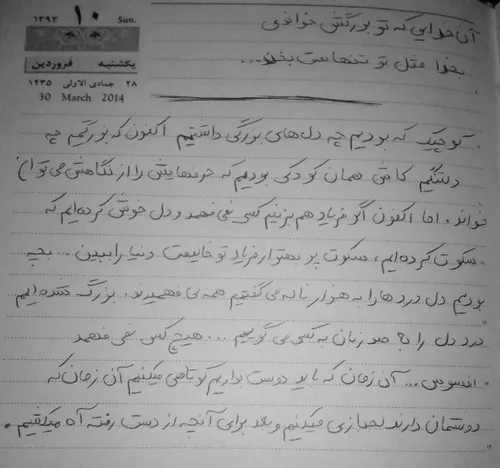 ۱۳۹۳ ۱۰ Sun.
یکشنبه فروردین
۲۸ جمادی الاولی ۱۴۳۵
30 March 2014
آن خدایی که تو بزرگش خواندی
بخدا مثل تو تنهاست بخند...
کوچک که بودیم چه دل های بزرگی داشتیم اکنون که بزرگیم چه
دلتنگیم کاش همان کودکی بودیم که حرفهایش را از نگاهش می توان
خواند، اما اکنون اگر فریاد هم بزنیم کسی نمی فهمد و دل خوش کرده ایم که
سکوت کرده ایم، سکوت پر بهتر از فریاد تو خالیست دنیا را ببین... بچه
بودیم دل درد ها را به هزار ناله می گفتیم همه می فهمیدند، بزرگ شده ایم
درد دل را به صد زبان به کسی می گوییم... هیچ کس نمی فهمد
افسوس... آن زمان که باید دوست بداریم کوتاهی میکنیم آن زمان که
دوستمان دارند لجبازی میکنیم و بعد برای آنچه از دست رفته آه میکشیم.